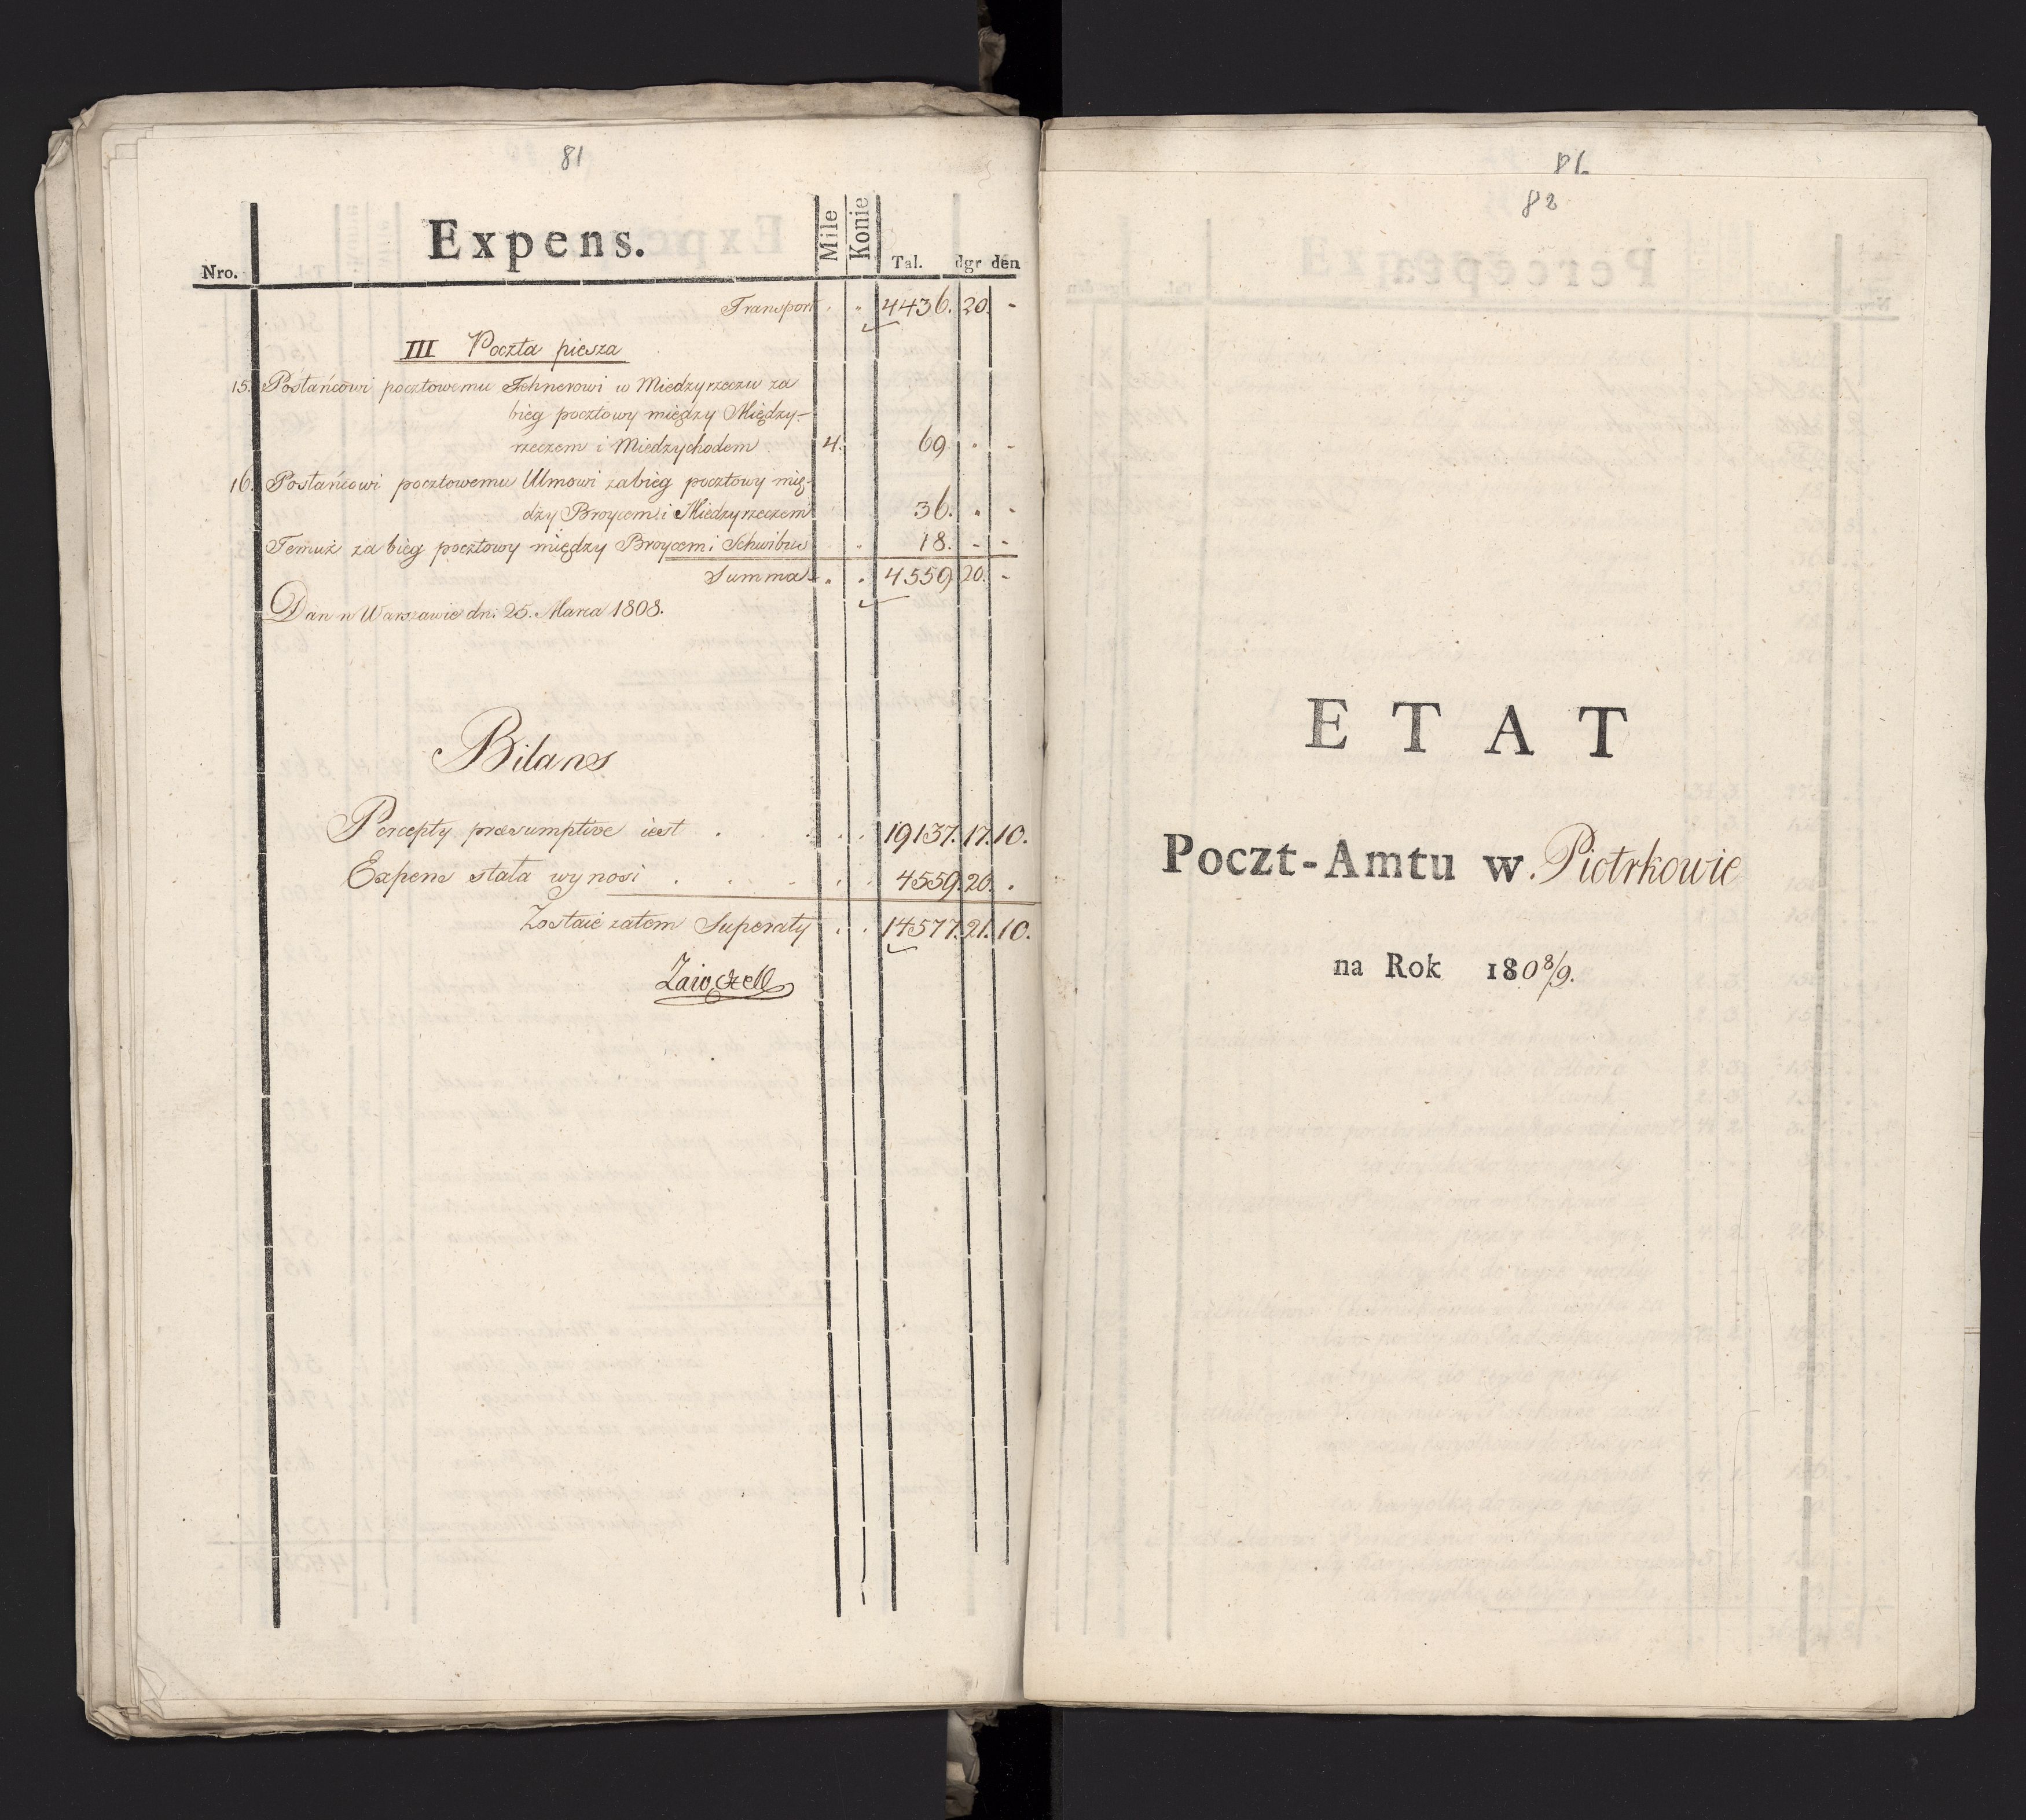 81
Nro. Expens. Mile Konie Tal. dgr den
Transport 4436. 20. -
III Poczta piesza
15. Posłańcowi pocztowemu Fehnerowi w Miedzyrzeczu za
bieg pocztowy między Między-
rzeczem i Miedzychodem 4. 69. . -
16. Posłańcowi pocztowemu Ulmowi za bieg pocztowy mię-
dzy Broycem i Miedzyrzeczem 36. . -
Temuż za bieg pocztowy między Broycem i Schwibus 18. - -
Summa 4559. 20. -
Dan w Warszawie dn: 25. Marca 1808.
Bilans
Percepty praesumptive iest 19137. 17. 10.
Expens stała wynosi 4559. 20. .
Zostaie zatem Superaty 14577. 21. 10.
Zaiączek
86
82
ETAT
Poczt-Amtu w Piotrkowie
na Rok 1808/9.